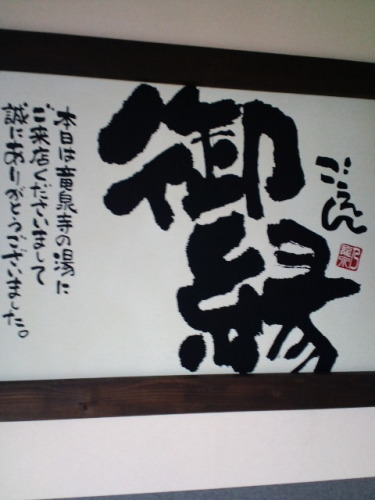 ごえん
御縁
本日は竜泉寺の湯に
ご来店くださいまして
誠にありがとうございました。